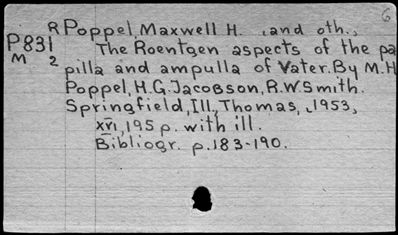 6
R Poppel, Maxwell H. , and oth.,
P831 The Roentgen aspects of the pa
M 2 pilla and ampulla of Vater. By M.H.
Poppel, H.G. Jacobson, R.W. Smith.
Springfield, Ill., Thomas, 1953,
XVI, 195 p. with ill.
Bibliogr. p. 183-190.